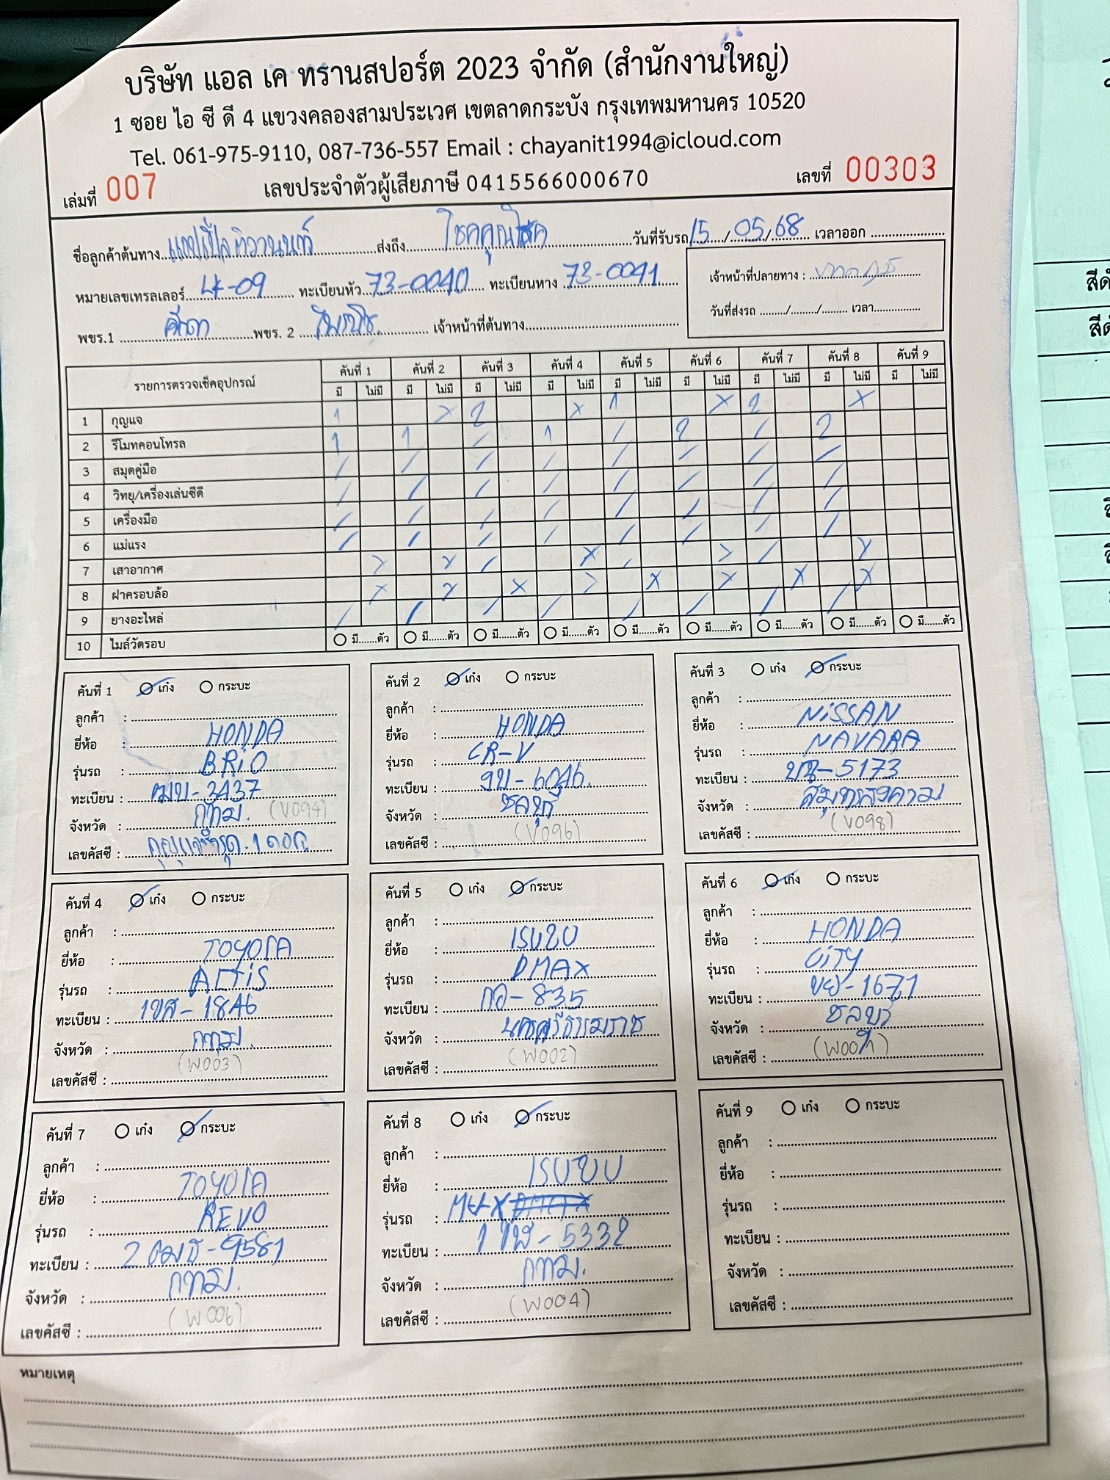 บริษัท แอล เค ทรานสปอร์ต 2023 จำกัด (สำนักงานใหญ่)
1 ซอย ไอ ซี ดี 4 แขวงคลองสามประเวศ เขตลาดกระบัง กรุงเทพมหานคร 10520
Tel. 061-975-9110, 087-736-557 Email : chayanit1994@icloud.com
เล่มที่ 007 เลขประจำตัวผู้เสียภาษี 0415566000670 เลขที่ 00303
ชื่อลูกค้าต้นทาง ติวานนท์ ส่งถึง โชคคูณโชค วันที่รับรถ 15/05/68 เวลาออก
หมายเลขเทรลเลอร์ LK-09 ทะเบียนหัว 73-0040 ทะเบียนหาง 73-0041
เจ้าหน้าที่ปลายทาง :
พขร.1 พขร. 2 เจ้าหน้าที่ต้นทาง
วันที่ส่งรถ ......../......../........ เวลา
รายการตรวจเช็คอุปกรณ์ คันที่ 1 คันที่ 2 คันที่ 3 คันที่ 4 คันที่ 5 คันที่ 6 คันที่ 7 คันที่ 8 คันที่ 9
มี ไม่มี มี ไม่มี มี ไม่มี มี ไม่มี มี ไม่มี มี ไม่มี มี ไม่มี มี ไม่มี มี ไม่มี
1 กุญแจ 1 x 2 x 1 x 2 x
2 รีโมทคอนโทรล 1 1 / 1 / 2 / 2
3 สมุดคู่มือ / / / / / / / /
4 วิทยุ/เครื่องเล่นซีดี / / / / / / / /
5 เครื่องมือ / / / / / / / /
6 แม่แรง / / / / / / / /
7 เสาอากาศ x x / x / x / x
8 ฝาครอบล้อ x x x x x x x x
9 ยางอะไหล่ / / / / / / / /
10 ไมล์วัดรอบ มี.......ตัว มี.......ตัว มี.......ตัว มี.......ตัว มี.......ตัว มี.......ตัว มี.......ตัว มี.......ตัว มี.......ตัว
คันที่ 1 เก๋ง กระบะ
ลูกค้า :
ยี่ห้อ : HONDA
รุ่นรถ : BRiO
ทะเบียน : ฌบ-3437
จังหวัด : กทม. (V094)
เลขคัสซี : กุญแจชำรุด 1 ดอก
คันที่ 2 เก๋ง กระบะ
ลูกค้า :
ยี่ห้อ : HONDA
รุ่นรถ : CR-V
ทะเบียน : งบ-6046
จังหวัด : ชลบุรี
เลขคัสซี : (V096)
คันที่ 3 เก๋ง กระบะ
ลูกค้า :
ยี่ห้อ : NiSSAN
รุ่นรถ : NAVARA
ทะเบียน : -5173
จังหวัด : สมุทรสงคราม
เลขคัสซี : (V098)
คันที่ 4 เก๋ง กระบะ
ลูกค้า :
ยี่ห้อ : TOYOTA
รุ่นรถ : ALTiS
ทะเบียน : 1ขส-1846
จังหวัด : กทม.
เลขคัสซี : (W003)
คันที่ 5 เก๋ง กระบะ
ลูกค้า :
ยี่ห้อ : ISUZU
รุ่นรถ : DMAX
ทะเบียน : กอ-835
จังหวัด : นครศรีธรรมราช
เลขคัสซี : (W002)
คันที่ 6 เก๋ง กระบะ
ลูกค้า :
ยี่ห้อ : HONDA
รุ่นรถ : CiTY
ทะเบียน : ขย-1671
จังหวัด : ชลบุรี
เลขคัสซี :
คันที่ 7 เก๋ง กระบะ
ลูกค้า :
ยี่ห้อ : TOYOTA
รุ่นรถ : REVO
ทะเบียน : 2ฒธ-9581
จังหวัด : กทม.
เลขคัสซี : (W006)
คันที่ 8 เก๋ง กระบะ
ลูกค้า :
ยี่ห้อ : ISUZU
รุ่นรถ : MU-X
ทะเบียน : -5332
จังหวัด : กทม.
เลขคัสซี : (W004)
คันที่ 9 เก๋ง กระบะ
ลูกค้า :
ยี่ห้อ :
รุ่นรถ :
ทะเบียน :
จังหวัด :
เลขคัสซี :
หมายเหตุ